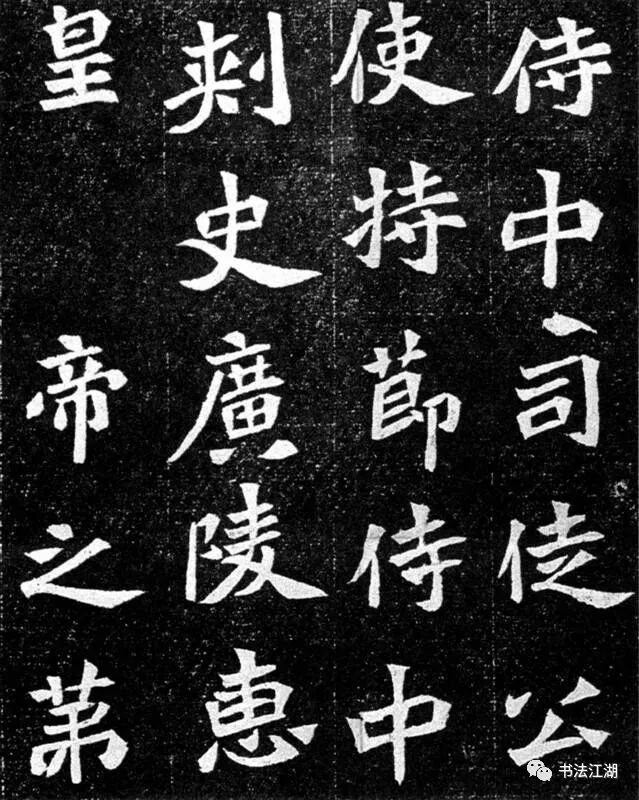 侍中司徒公
使持節侍中
刺史廣陵惠
皇帝之第
书法江湖